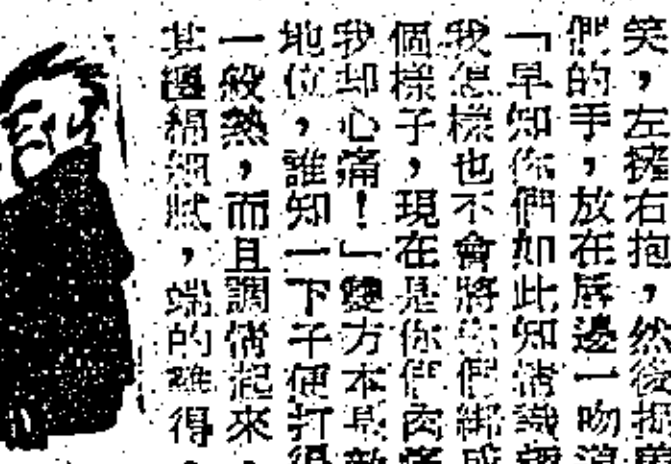 笑,左擁右抱,然後把
們的手,放在唇邊一吻道
「早知你們如此知情識趣
我怎樣也不會將你們綁成
個樣子,現在是你們肉痛
我却心痛!」雙方本是敵
地位,誰知一下子便打得
一般熱,而且調情起來,
其纏綿細膩,端的難得,